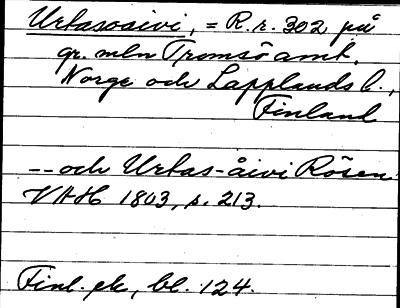 Urtasoaivi, = R.r. 302 på
gr. mln Tromsö amt,
Norge och Lapplands l.,
Finland
-- och Urtas-åivi Rösen
VAH 1803, s. 213.
Finl. ek, bl. 124.